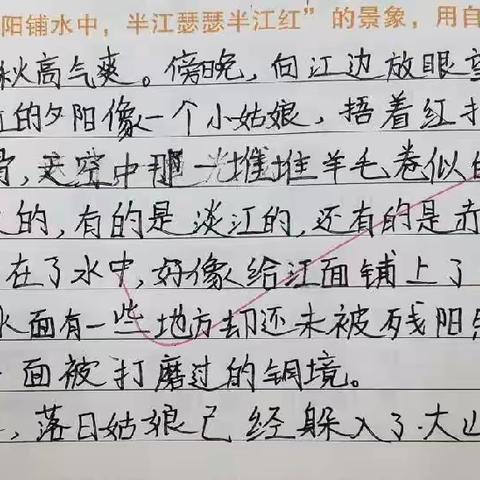 阳铺水中，半江瑟瑟半江红”的景象，用自
秋高气爽。傍晚，向江边放眼望
的夕阳像一个小姑娘，捂着红
，天空中那一堆堆羊毛卷似的
的，有的是淡江的，还有的是赤
在了水中，好像给江面铺上了
水面有一些地方却还未被残阳
面被打磨过的铜境。
，落日姑娘已经躲入了大山